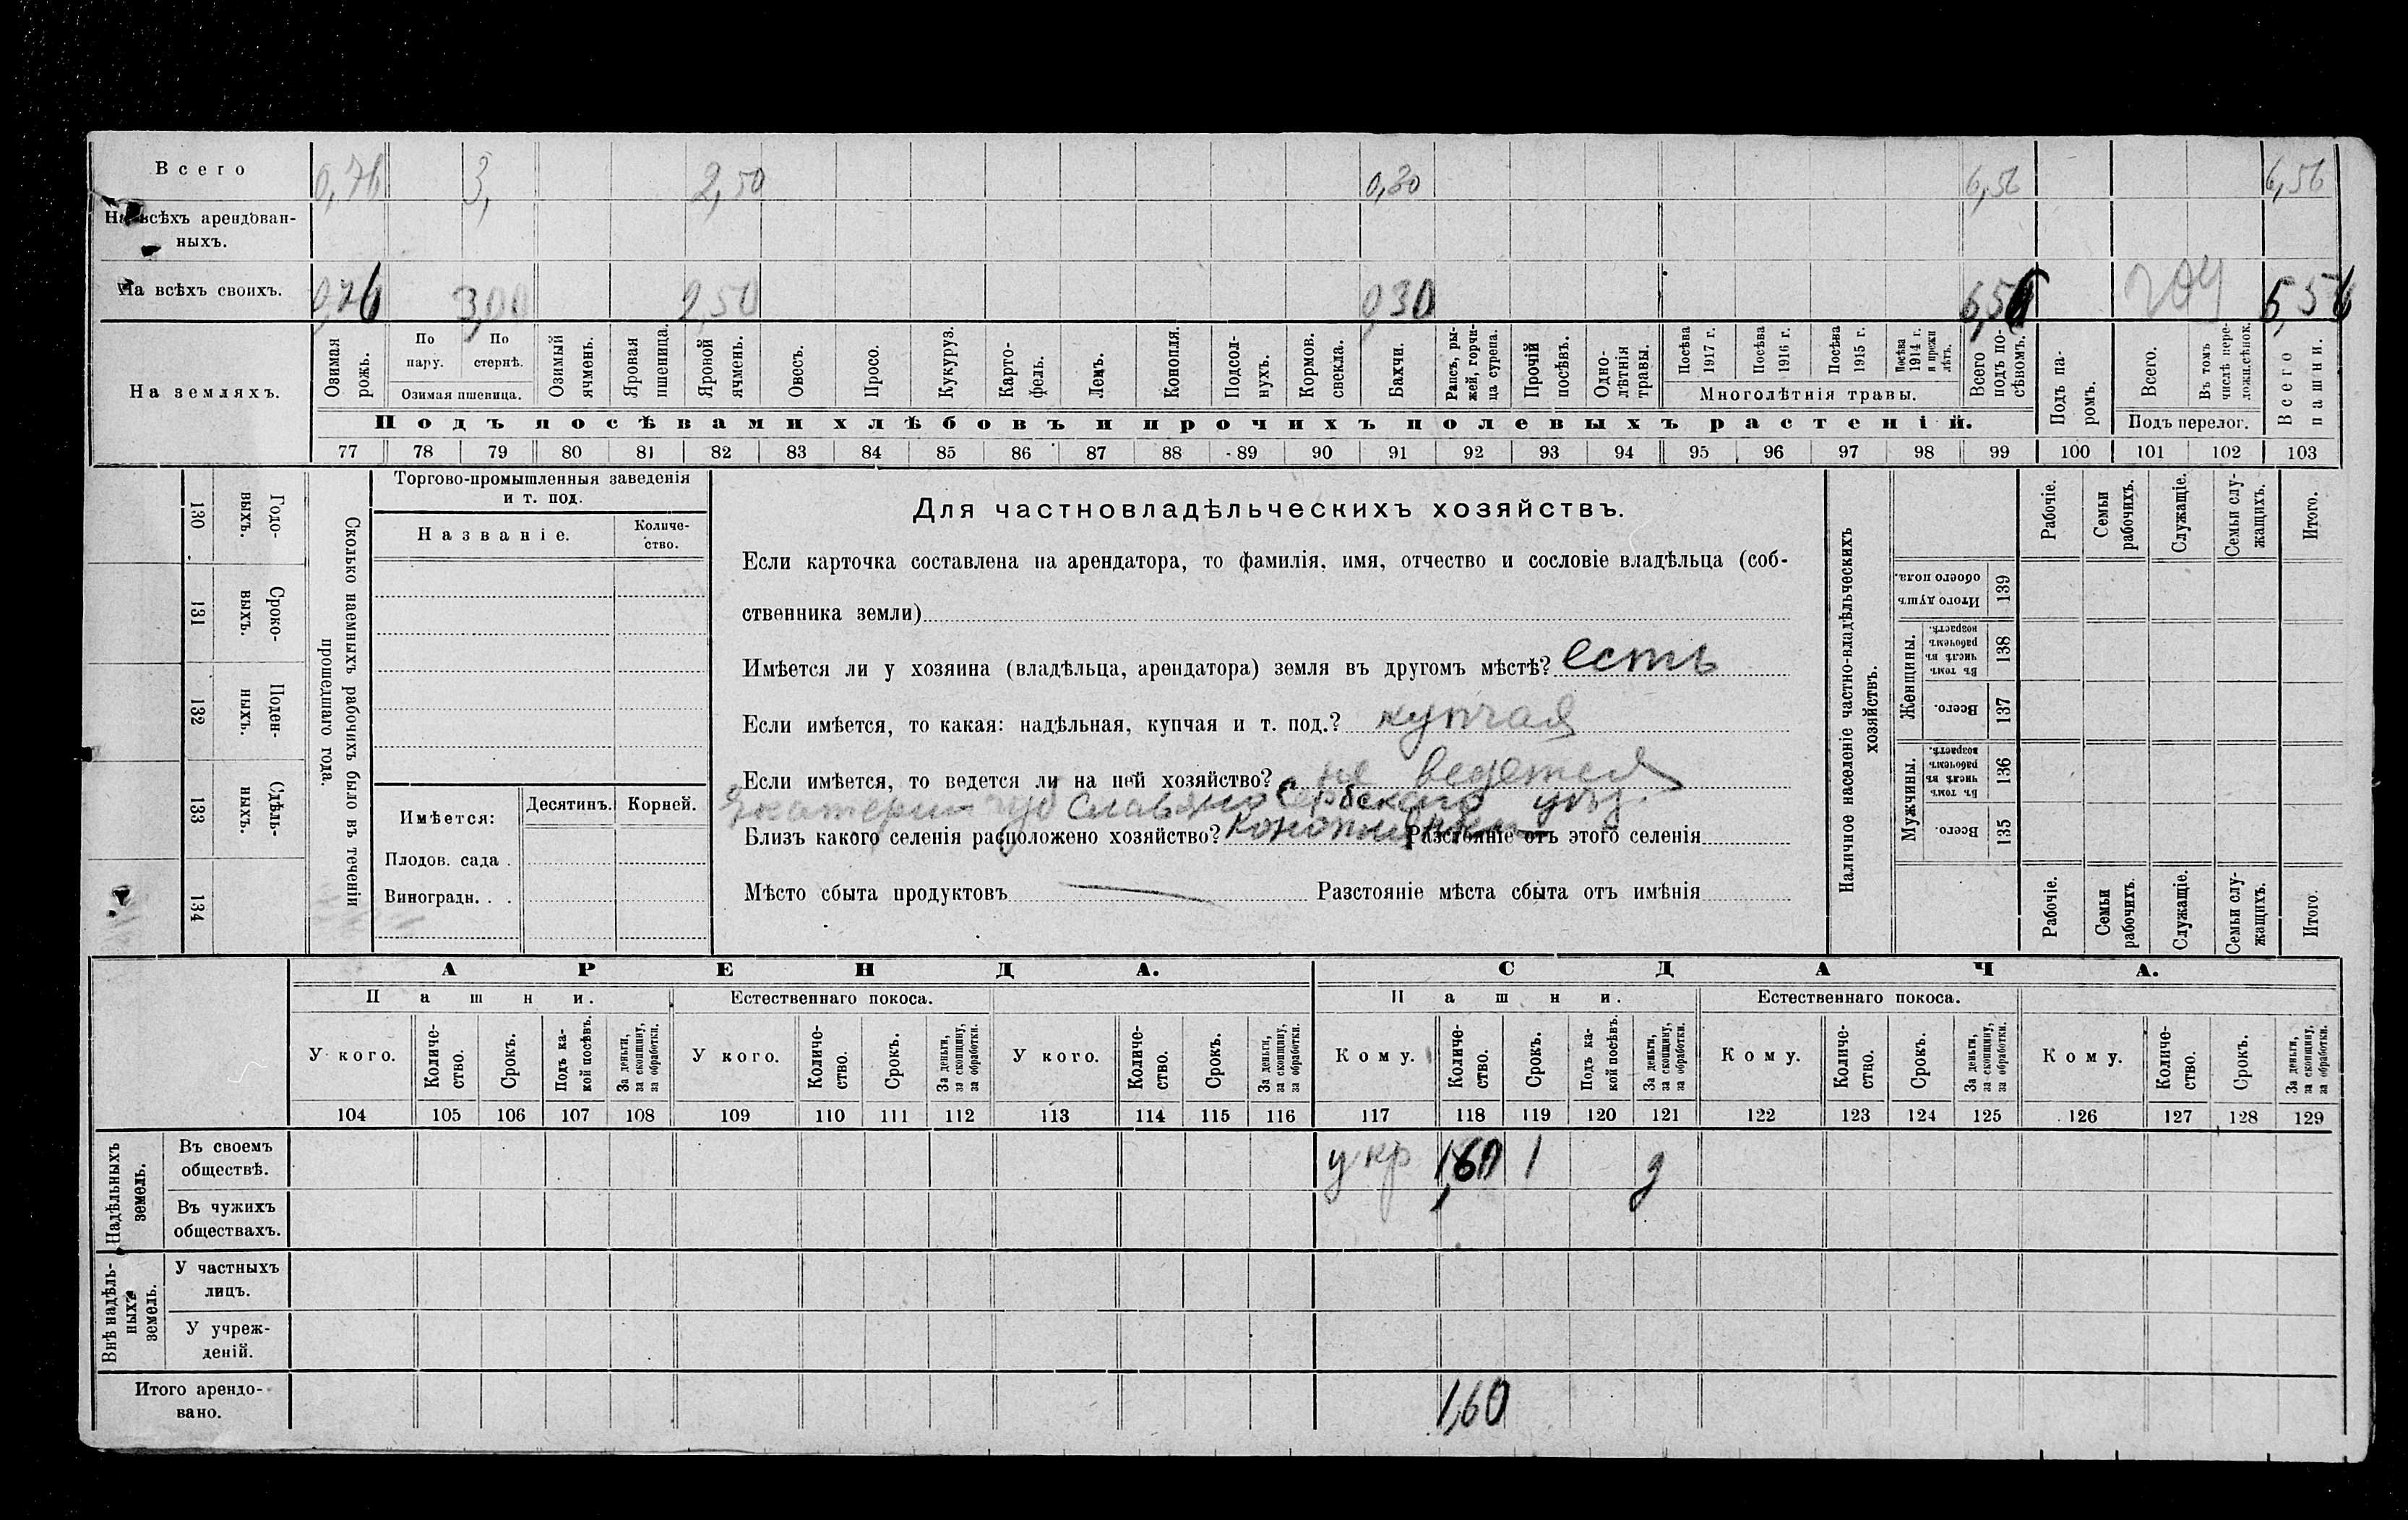 Всего 0,76 3, 2,50 0,30 6,56 6,56
На всѣхъ арендован-
ныхъ.
На всѣхъ своихъ. 0,76 3,00 2,50 0,30 6,56 6,56
На земляхъ.
Озимая рожь.
По пару.
По стернѣ.
Озимая пшеница.
Озимый ячмень.
Яровая пшеница.
Яровой ячмень.
Овесъ.
Просо.
Кукуруз.
Карто-
фель.
Ленъ.
Конопля.
Подсол-
нухъ.
Кормов. свекла.
Бахчи.
Рапсъ, ры-
жей, горчи-
ца сурепа.
Прочій посѣвъ.
Одно-
лѣтнія травы.
Посѣва 1917 г.
Посѣва 1916 г.
Посѣва 1915 г.
Посѣва 1914 г. и прежн лѣтъ.
Многолѣтнія травы.
Всего подъ по-
сѣвомъ.
Подъ па-
ромъ.
Всего.
Въ томъ числѣ пере-
ложн.сѣнок.
Подъ перелог.
Всего пашни.
Подъ посѣвами хлѣбовъ и прочихъ полевыхъ растеній.
77 78 79 80 81 82 83 84 85 86 87 88 89 90 91 92 93 94 95 96 97 98 99 100 101 102 103
Сколько наемныхъ рабочихъ было въ теченіи
прошедшаго года.
Годо-
выхъ.
130
Сроко-
выхъ.
131
Поден-
ныхъ.
132
Сдѣль-
ныхъ.
133
134
Торгово-промышленныя заведенія
и т. под.
Названіе.
Количе-
ство.
Имѣется:
Десятинъ.
Корней.
Плодов. сада .
Виноградн. . .
Для частновладѣльческихъ хозяйствъ.
Если карточка составлена на арендатора, то фамилія, имя, отчество и сословіе владѣльца (соб-
ственника земли)
Имѣется ли у хозяина (владѣльца, арендатора) земля въ другомъ мѣстѣ? есть
Если имѣется, то какая: надѣльная, купчая и т. под.? купчая
Если имѣется, то ведется ли на ней хозяйство? не ведется
Славяносербскаго уѣз.
Близъ какого селенія расположено хозяйство? Разстояніе отъ этого селенія
Мѣсто сбыта продуктовъ Разстояніе мѣста сбыта отъ имѣнія
Наличное населеніе частно-владѣльческихъ
хозяйствъ.
Рабочіе.
Семьи рабочихъ.
Служащіе.
Семьи слу-
жащихъ.
Итого.
Итого душ
обоего пола.
139
Женщины.
Въ томъ числѣ въ рабочемъ возрастѣ.
138
Всего.
137
Мужчины.
Въ томъ числѣ въ рабочемъ возрастѣ.
136
Всего.
135
Рабочіе.
Семьи рабочихъ.
Служащіе.
Семьи слу-
жащихъ.
Итого.
АРЕНДА. СДАЧА.
Пашни. Естественнаго покоса. Пашни. Естественнаго покоса.
У кого.
Количе-
ство.
Срокъ.
Подъ ка-
кой посѣвъ.
За деньги,
за скопщину,
за обработки.
У кого.
Количе-
ство.
Срокъ.
За деньги,
за скопщину,
за обработки.
У кого.
Количе-
ство.
Срокъ.
За деньги,
за скопщину,
за обработки.
Кому.
Количе-
ство.
Срокъ.
Подъ ка-
кой посѣвъ.
За деньги,
за скопщину,
за обработки.
Кому.
Количе-
ство.
Срокъ.
За деньги,
за скопщину,
за обработки.
Кому.
Количе-
ство.
Срокъ.
За деньги,
за скопщину,
за обработки.
104 105 106 107 108 109 110 111 112 113 114 115 116 117 118 119 120 121 122 123 124 125 126 127 128 129
Надѣльныхъ
земель.
Въ своемъ
обществѣ. у кр 1,60 1 д
Въ чужихъ
обществахъ.
Внѣ надѣль-
ныхъ
земель.
У частныхъ
лицъ.
У учреж-
деній.
Итого арендо-
вано. 1,60